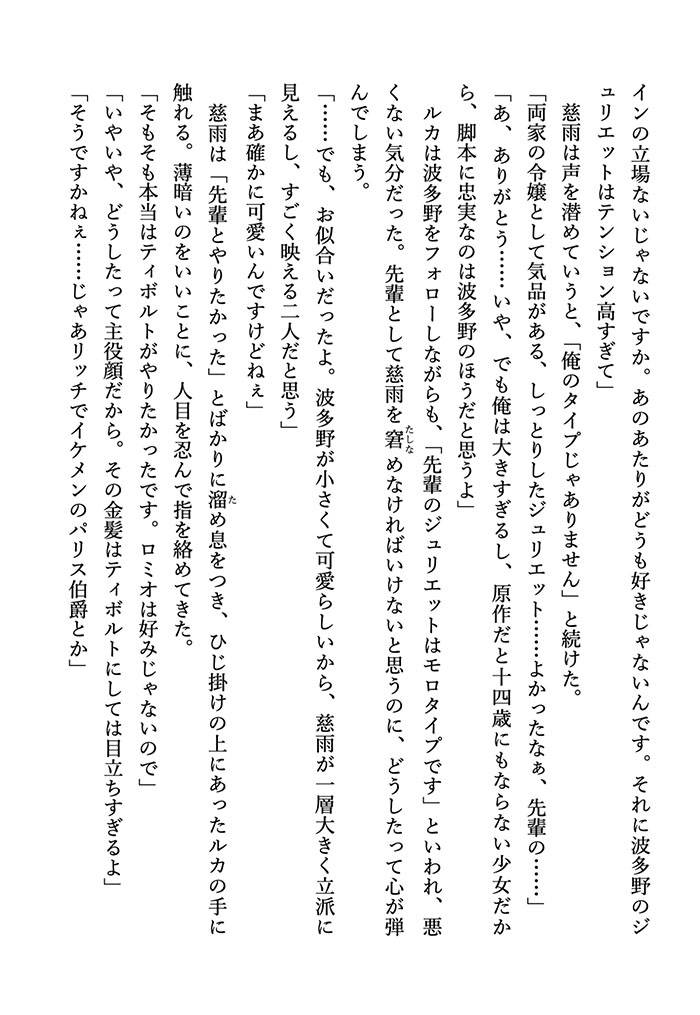 インの立場ないじゃないですか。あのあたりがどうも好きじゃないんです。それに波多野のジ
ュリエットはテンション高すぎて」
　慈雨は声を潜めていうと、「俺のタイプじゃありません」と続けた。
「両家の令嬢として気品がある、しっとりしたジュリエット……よかったなぁ、先輩の……」
「あ、ありがとう……いや、でも俺は大きすぎるし、原作だと十四歳にもならない少女だか
ら、脚本に忠実なのは波多野のほうだと思うよ」
　ルカは波多野をフォローしながらも、「先輩のジュリエットはモロタイプです」といわれ、悪
くない気分だった。先輩として慈雨を窘めなければいけないと思うのに、どうしたって心が弾
たしな
んでしまう。
「……でも、お似合いだったよ。波多野が小さくて可愛らしいから、慈雨が一層大きく立派に
見えるし、すごく映える二人だと思う」
「まあ確かに可愛いんですけどねぇ」
　慈雨は「先輩とやりたかった」とばかりに溜め息をつき、ひじ掛けの上にあったルカの手に
た
触れる。薄暗いのをいいことに、人目を忍んで指を絡めてきた。
「そもそも本当はティボルトがやりたかったです。ロミオは好みじゃないので」
「いやいや、どうしたって主役顔だから。その金髪はティボルトにしては目立ちすぎるよ」
「そうですかねぇ……じゃあリッチでイケメンのパリス伯爵とか」